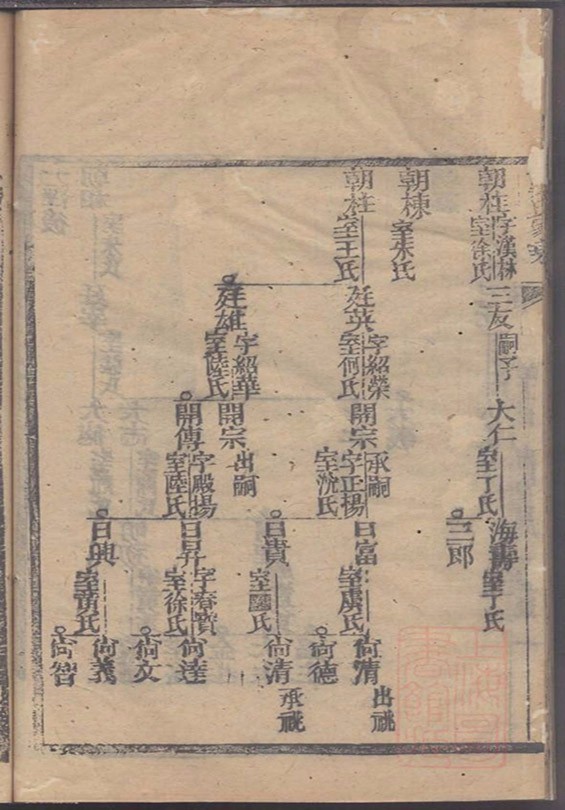 朝柱字漢林
室徐氏
三友嗣子
大仁室丁氏
海壽室丁氏
三郎
朝棟室朱氏
朝柱室王氏
廷英字紹榮
室何氏
開宗承嗣
字正揚
室沈氏
日富室虞氏
尚清出祧
尚德
日貴
尚清承祧
廷雄字紹華
室陸氏
開宗出嗣
開傳字殿揚
室陸氏
日昇字春寶
室徐氏
尚達
尚文
日興室黃氏
尚義
尚智